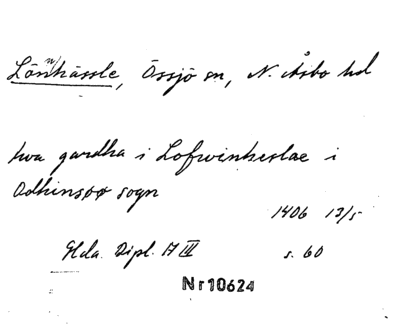 Lönnhässle, Össjö sn, N. Åsbo hd
twa gardha i Lofwinheslae i
Odhinsøø sogn
1406 13/5
Glda. Dipl. A III s. 60
Nr 10624